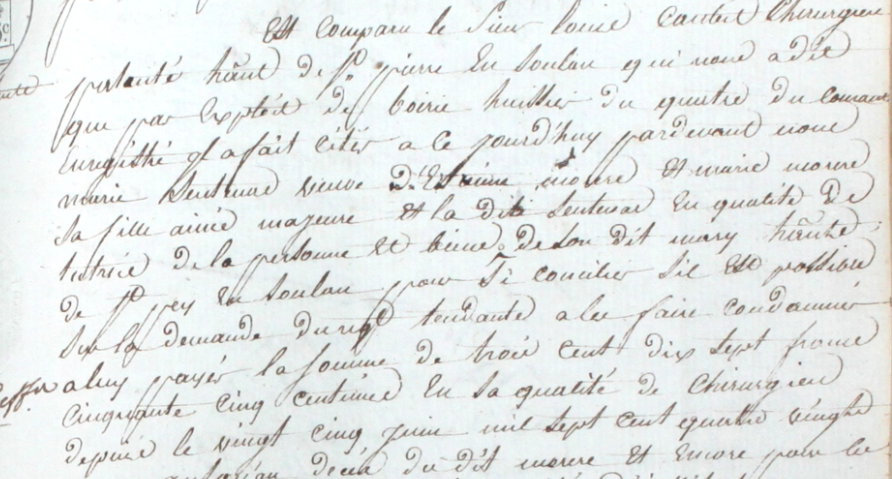 Est comparu le sieur louis Cautet Chirurgien
hãnt de St. pierre En soulan qui nous a dit
que par Exploit de boirie huissier du quatre du courant
Enregistré Il a fait citer a ce jourd'huy pardevant nous
marie Sentenac veuve D'Estienne morere et marie morere
sa fille ainée majeure et la dite Sentenac En qualité de
tutrice de la personne et biens de son dit mary hãnte
de St En soulan pour Si concilier s'il Est possible
sur la demande du tendante a les faire condamner
a luy payer la somme de trois cent dix sept francs
cinquante cinq centimes En sa qualité de Chirurgien
depuis le vingt cinq juin mil sept cent quatre vingts
décès du dit morere Et Encore pour les